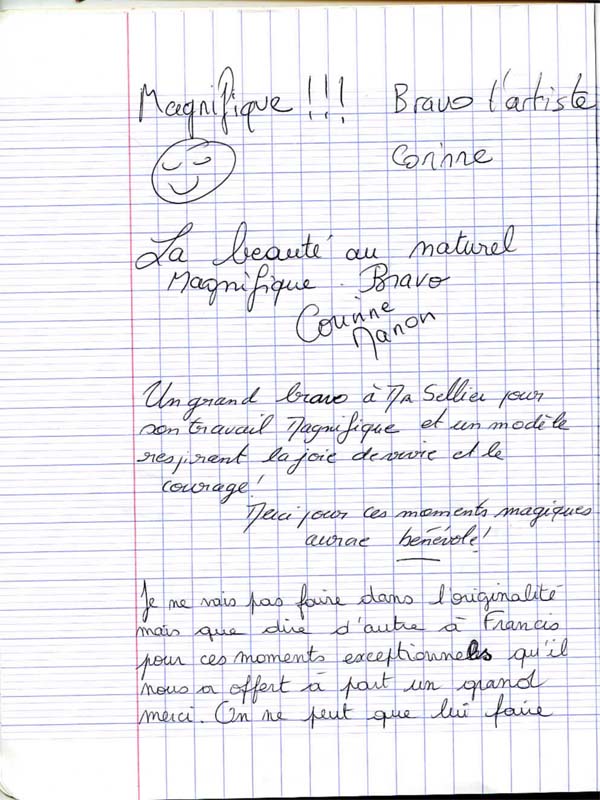 Magnifique !!! Bravo l'artiste
Corinne
La beauté au naturel
Magnifique. Bravo
Corinne
Manon
Un grand bravo à Mr Sellier pour
son travail Magnifique et un modèle
respirent la joie de vivre et le
courage!
Merci pour ces moments magiques
bénévole!
Je ne vais pas faire dans l'originalité
mais que dire d'autre à Francis
pour ces moments exceptionnels qu'il
nous a offert à part un grand
merci. On ne peut que lui faire